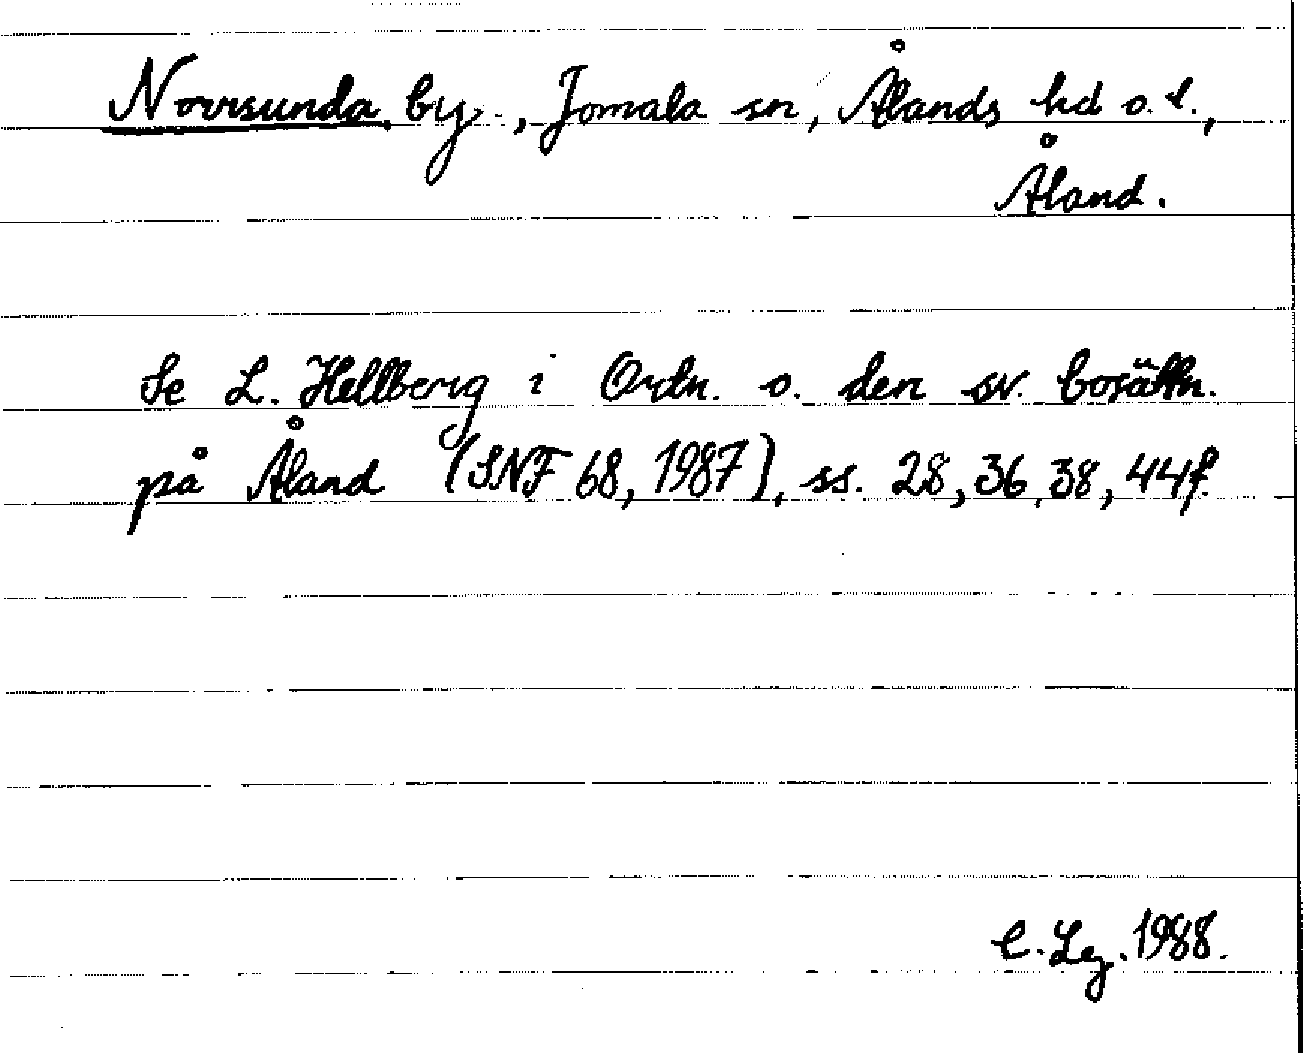 Norrsunda, by, Jomala sn, Ålands hd o. l.,
Åland.
Se L. Hellberg i Ortn. o. den sv. bosättn.
på Åland (SNF 68, 1987), ss. 28, 36, 38, 44f.
C. Lg. 1988.